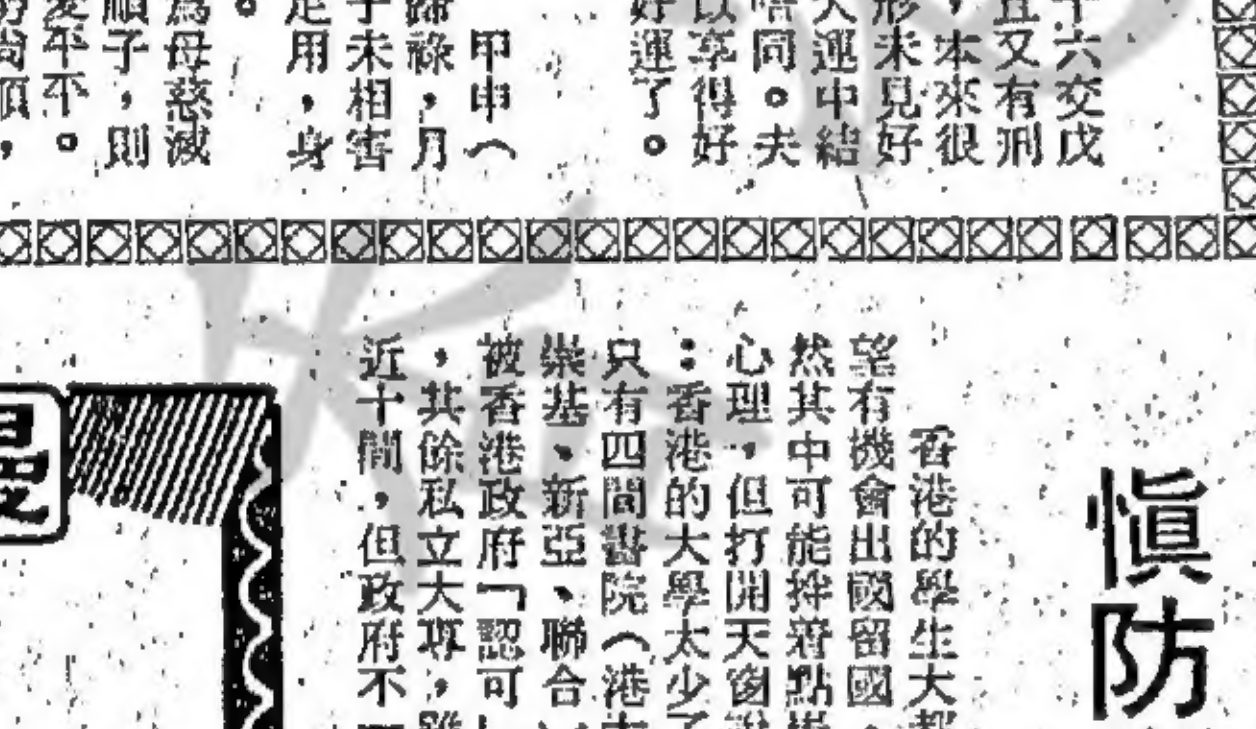 十六交戊
且又有刑
，本來很
形未見好
大運中結
唔同。夫
以享得好
好運了。
甲申（
歸祿，月
子未相害
足用，身
。
為母慈滅
順子，則
愛平平。
尚順，
慎防
香港的學生大都
望有機會出國留國，
然其中可能拌着點崇
心理，但打開天窗說
：香港的大學太少了
只有四間書院（港大
崇基、新亞、聯合）
被香港政府「認可」
，其餘私立大專，雖
近十間，但政府不